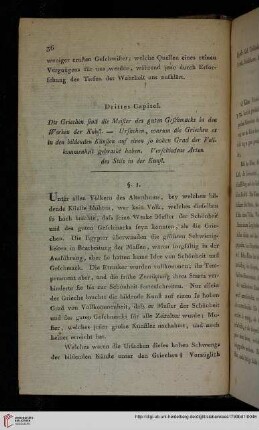 36
weniger ernsten Geschwister; welche Quellen eines reinen
Vergnügens für uns werden, während jene durch Erfor-
schung der Tiefen der Weisheit uns aufklärt.
Drittes Capitel.
Die Griechen sind die Muster des guten Geschmacks in den
Werken der Kunst. — Ursachen, warum die Griechen es
in den bildenden Künsten auf einen so hohen Grad der Voll-
kommenheit gebracht haben. Verschiedene Arten
des Stils in der Kunst.
§. 1.
Unter allen Völkern des Alterthums, bey welchen bil-
dende Künste blühten, war kein Volk, welches dieselben
so hoch brachte, daß seine Werke Muster der Schönheit
und des guten Geschmacks seyn konnten, als die Grie-
chen. Die Egypter
in Bearbeitung der Massen, waren sorgfältig in der
Ausführung, aber sie hatten keine Idee von Schönheit und
Geschmack. Die Etrusker wurden vollkommner, als die
aber, und die frühe Zerstörung ihres Staats ver-
hinderte sie bis zur Schönheit fortzuschreiten. Nur allein
die Griechen brachte die bildende Kunst auf einen so hohen
Grad von Vollkommenheit, daß er Muster der Schönheit
und des guten Geschmacks für alle Zeitalter wurde; Mu-
ster, welches jeder große Künstler nachahmt, und noch
keiner erreicht hat.
Welches waren die Ursachen dieses hohen Schwungs
der bildenden Künste unter den Griechen? Vorzüglich